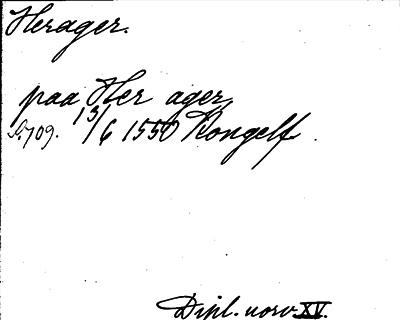 Herager.
paa Her ager
S. 709. 13/6 1550 Kongelf.
Dipl. norv. XV.